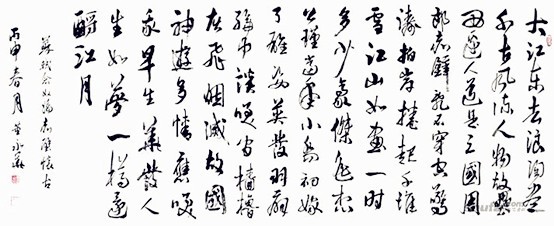 大江东去浪淘尽
千古风流人物故垒
西边人道是三國周
郎赤壁乱石穿空惊
涛拍岸捲起千堆
雪江山如画一时
多少豪傑遥想
公瑾当年小乔初嫁
了雄姿英发羽扇
纶巾谈笑间樯橹
灰飞烟灭故國
神遊多情應笑
我早生華髮人
生如夢一樽還
酹江月
蘇軾念奴娇赤壁怀古
丙申春月